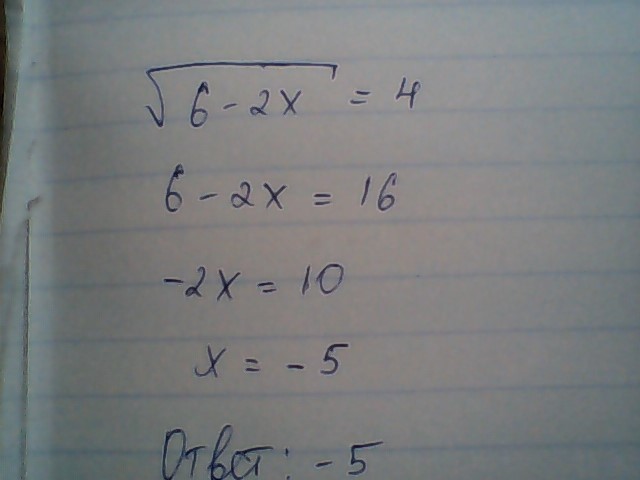 √(6 - 2x) = 4
6 - 2x = 16
-2x = 10
x = -5
Ответ: -5